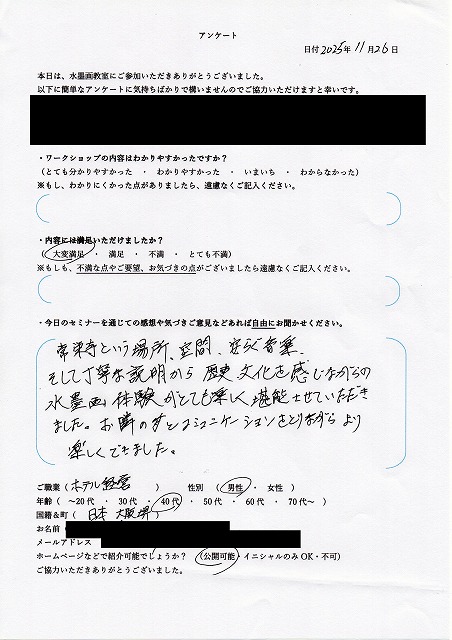 アンケート
日付 2025年 11月 26日
本日は、水墨画教室にご参加いただきありがとうございました。
以下に簡単なアンケートに気持ちばかりで構いませんのでご協力いただけますと幸いです。
・ワークショップの内容はわかりやすかったですか？
（とても分かりやすかった ・ わかりやすかった ・ いまいち ・ わからなかった）
※もし、わかりにくかった点がありましたら、遠慮なくご記入ください。
・内容には満足いただけましたか？
（大変満足 ・ 満足 ・ 不満 ・ とても不満）
※もしも、不満な点やご要望、お気づきの点がございましたら遠慮なくご記入ください。
・今日のセミナーを通じての感想や気づきご意見などあれば自由にお聞かせください。
という場所、空間、安らぐ音楽、
そして丁寧な説明から 歴史 文化を感じながらの
水墨画 体験がとても楽しく堪能させていただき
ました。お隣の方とコミュニケーションをとりながら より
楽しくできました。
ご職業（ホテル経営 ） 性別 （ 男性 ・ 女性 ）
年齢（ ～20代 ・ 30代 ・ 40代 ・ 50代 ・ 60代 ・ 70代～ ）
国籍&町（ 日本 大阪堺 ）
お名前
メールアドレス
ホームページなどで紹介可能でしょうか？ （公開可能・イニシャルのみOK・不可）
ご協力いただきありがとうございました。